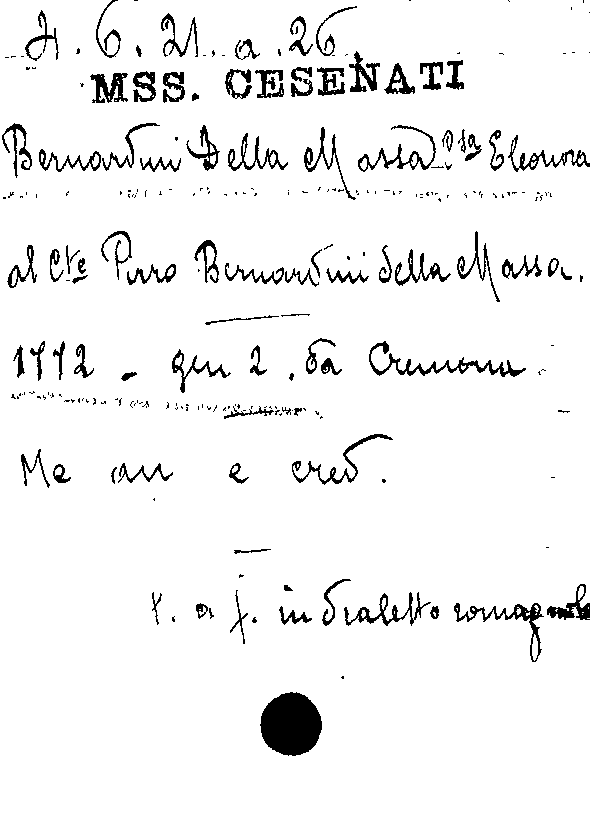 4. 6. 21. a. 26
MSS. CESENATI
Bernardini Della Massa C.sa Eleonora
al Cte Pirro Bernardini della Massa.
1772 - gen 2. da Cremona
Me an e cred.
f. in dialetto romagnolo